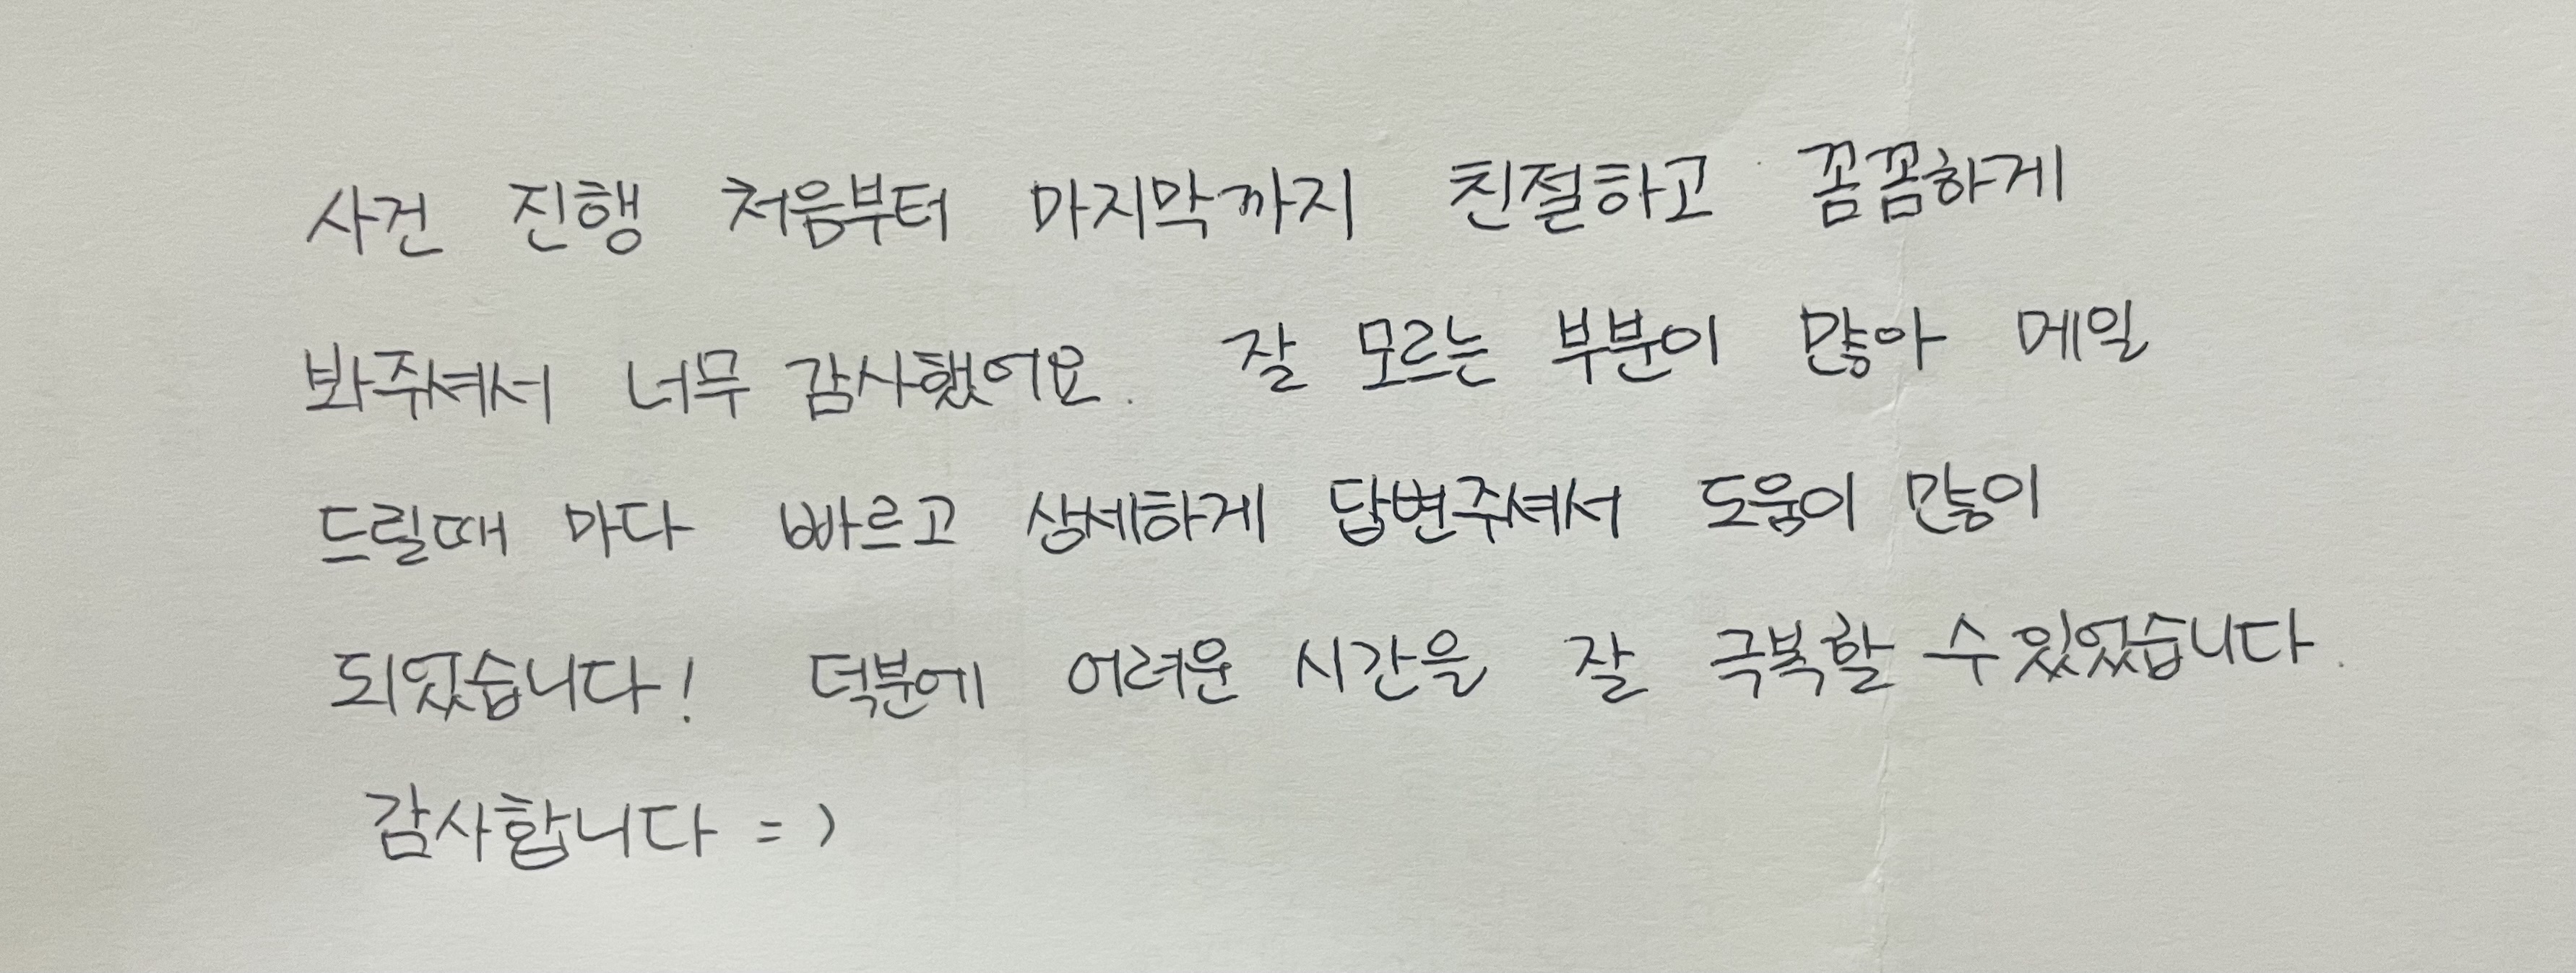 사건 진행 처음부터 마지막까지 친절하고 꼼꼼하게
봐주셔서 너무 감사했어요. 잘 모르는 부분이 많아 메일
드릴때 마다 빠르고 상세하게 답변주셔서 도움이 많이
되었습니다! 덕분에 어려운 시간을 잘 극복할 수 있었습니다.
감사합니다 = )